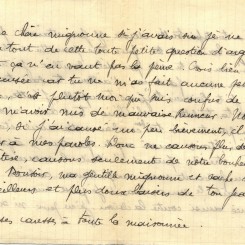 chère mignonne si j'avais su je ne
tout de cette toute petite question d'arg
ça n'en vaut pas la peine. Crois bien
car tu ne m'as fait aucune pe
c'est plutôt moi qui suis confus de
m'avoir mis de mauvaise humeur
si j'ai causé un peu brièvement, et
à mes paroles. Donc ne causons plus de
causons seulement de notre bonheur
Bonsoir, ma gentille mignonne et
meilleurs et plus doux baisers de ton Jea
ses caresses à toute la maisonnée